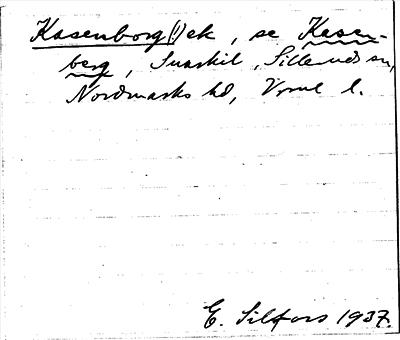 Kasenborg(!)ek, se Kasen-
berg, Svaskil, Silleruds sn,
Nordmarks hd, Vrml l.
E. Silfors 1937.